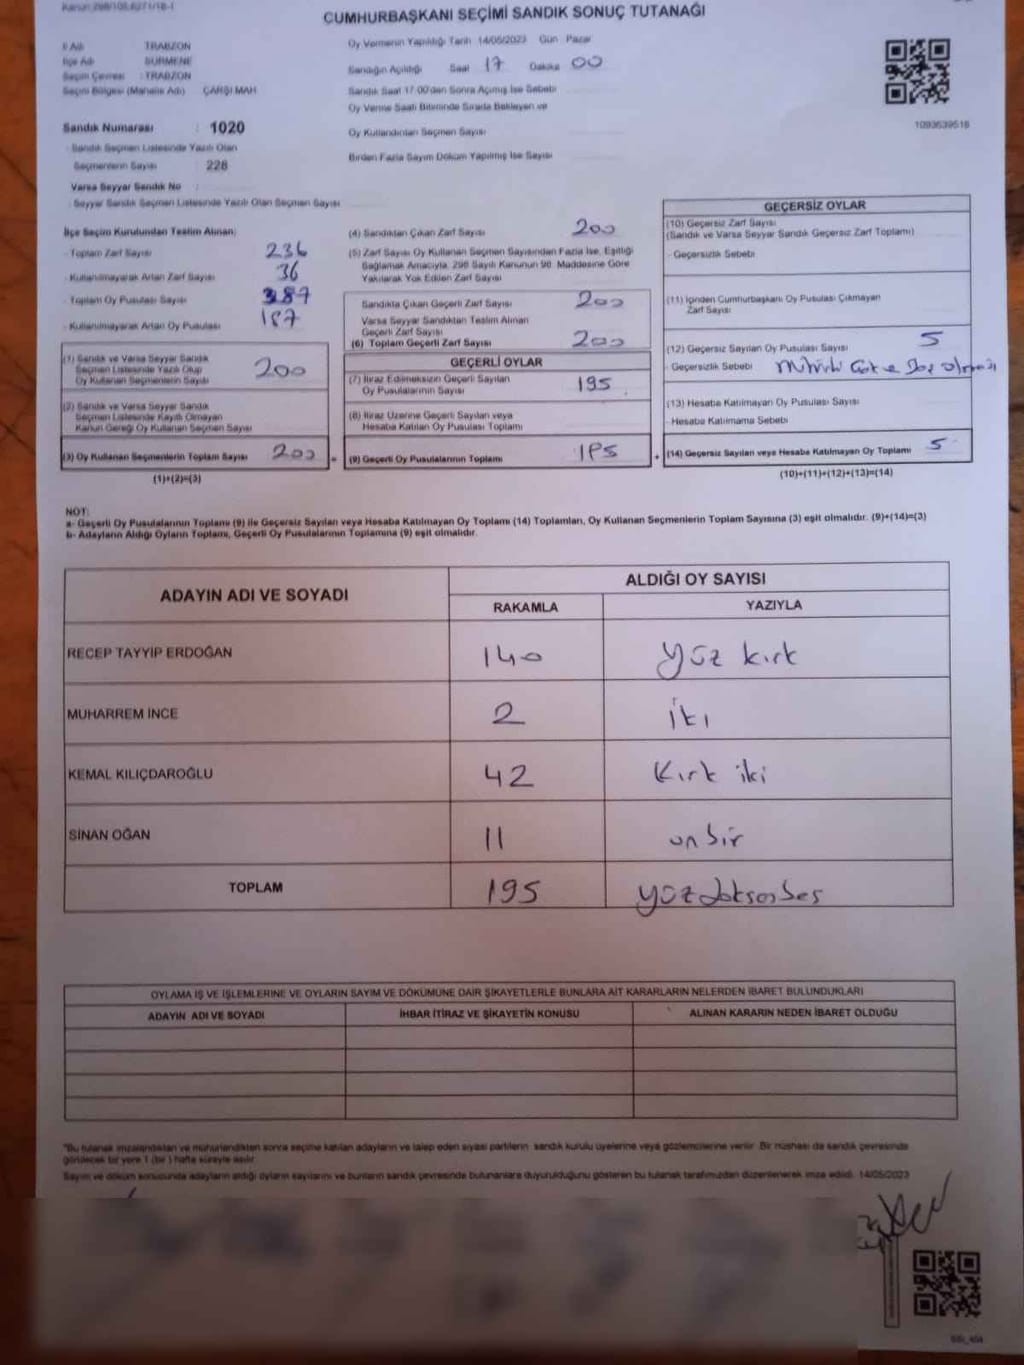 CUMHURBAŞKANI SEÇİMİ SANDIK SONUÇ TUTANAĞI
İl Adı TRABZON
İlçe Adı SÜRMENE
Seçim Çevresi : TRABZON
Seçim Bölgesi (Mahalle Adı) ÇARŞI MAH
Sandık Numarası : 1020
Sandık Seçmen Listesinde Yazılı Olan
Seçmenlerin Sayısı : 228
Varsa Seyyar Sandık No :
Seyyar Sandık Seçmen Listesinde Yazılı Olan Seçmen Sayısı
Oy Vermenin Yapıldığı Tarih 14/05/2023 Gün Pazar
Sandığın Açıldığı Saat 17 Dakika 00
Sandık Saat 17:00'den Sonra Açılmış İse Sebebi
Oy Verme Saati Bitiminde Sırada Bekleyen ve
Oy Kullandırılan Seçmen Sayısı
Birden Fazla Sayım Döküm Yapılmış İse Sayısı
1093639518
İlçe Seçim Kurulundan Teslim Alınan;
- Toplam Zarf Sayısı 236
- Kullanılmayarak Artan Zarf Sayısı 36
- Toplam Oy Pusulası Sayısı 387
- Kullanılmayarak Artan Oy Pusulası 187
(1) Sandık ve Varsa Seyyar Sandık
Seçmen Listesinde Yazılı Olup
Oy Kullanan Seçmenlerin Sayısı 200
(2) Sandık ve Varsa Seyyar Sandık
Seçmen Listesinde Kayıtlı Olmayan
Kanun Gereği Oy Kullanan Seçmen Sayısı
(3) Oy Kullanan Seçmenlerin Toplam Sayısı 200
(1)+(2)=(3)
(4) Sandıktan Çıkan Zarf Sayısı 200
(5) Zarf Sayısı Oy Kullanan Seçmen Sayısından Fazla İse, Eşitliği
Sağlamak Amacıyla, 298 Sayılı Kanunun 98. Maddesine Göre
Yakılarak Yok Edilen Zarf Sayısı
Sandıkta Çıkan Geçerli Zarf Sayısı 200
Varsa Seyyar Sandıktan Teslim Alınan
Geçerli Zarf Sayısı
(6) Toplam Geçerli Zarf Sayısı 200
GEÇERLİ OYLAR
(7) İtiraz Edilmeksizin Geçerli Sayılan
Oy Pusulalarının Sayısı 195
(8) İtiraz Üzerine Geçerli Sayılan veya
Hesaba Katılan Oy Pusulası Toplamı
= (9) Geçerli Oy Pusulalarının Toplamı 195
GEÇERSİZ OYLAR
(10) Geçersiz Zarf Sayısı
(Sandık ve Varsa Seyyar Sandık Geçersiz Zarf Toplamı)
- Geçersizlik Sebebi
(11) İçinden Cumhurbaşkanı Oy Pusulası Çıkmayan
Zarf Sayısı
(12) Geçersiz Sayılan Oy Pusulası Sayısı 5
- Geçersizlik Sebebi
(13) Hesaba Katılmayan Oy Pusulası Sayısı
- Hesaba Katılmama Sebebi
+ (14) Geçersiz Sayılan veya Hesaba Katılmayan Oy Toplamı 5
(10)+(11)+(12)+(13)=(14)
NOT:
a- Geçerli Oy Pusulalarının Toplamı (9) ile Geçersiz Sayılan veya Hesaba Katılmayan Oy Toplamı (14) Toplamları, Oy Kullanan Seçmenlerin Toplam Sayısına (3) eşit olmalıdır. (9)+(14)=(3)
b- Adayların Aldığı Oyların Toplamı, Geçerli Oy Pusulalarının Toplamına (9) eşit olmalıdır.
ADAYIN ADI VE SOYADI
ALDIĞI OY SAYISI
RAKAMLA YAZIYLA
RECEP TAYYİP ERDOĞAN 140 yüz kırk
MUHARREM İNCE 2 iki
KEMAL KILIÇDAROĞLU 42 Kırk iki
SİNAN OĞAN 11 onbir
TOPLAM 195 yüzdoksanbeş
OYLAMA İŞ VE İŞLEMLERİNE VE OYLARIN SAYIM VE DÖKÜMÜNE DAİR ŞİKAYETLERLE BUNLARA AİT KARARLARIN NELERDEN İBARET BULUNDUKLARI
ADAYIN ADI VE SOYADI İHBAR İTİRAZ VE ŞİKAYETİN KONUSU ALINAN KARARIN NEDEN İBARET OLDUĞU
"Bu tutanak imzalandıktan ve mühürlendikten sonra seçime katılan adayların ve talep eden siyasi partilerin sandık kurulu üyelerine veya gözlemcilerine verilir. Bir nüshası da sandık çevresinde
görülecek bir yere 1 (bir ) hafta süreyle asılır.
Sayım ve döküm sonucunda adayların aldığı oyların sayılarını ve bunların sandık çevresinde bulunanlara duyurulduğunu gösteren bu tutanak tarafımızdan düzenlenerek imza edildi. 14/05/2023